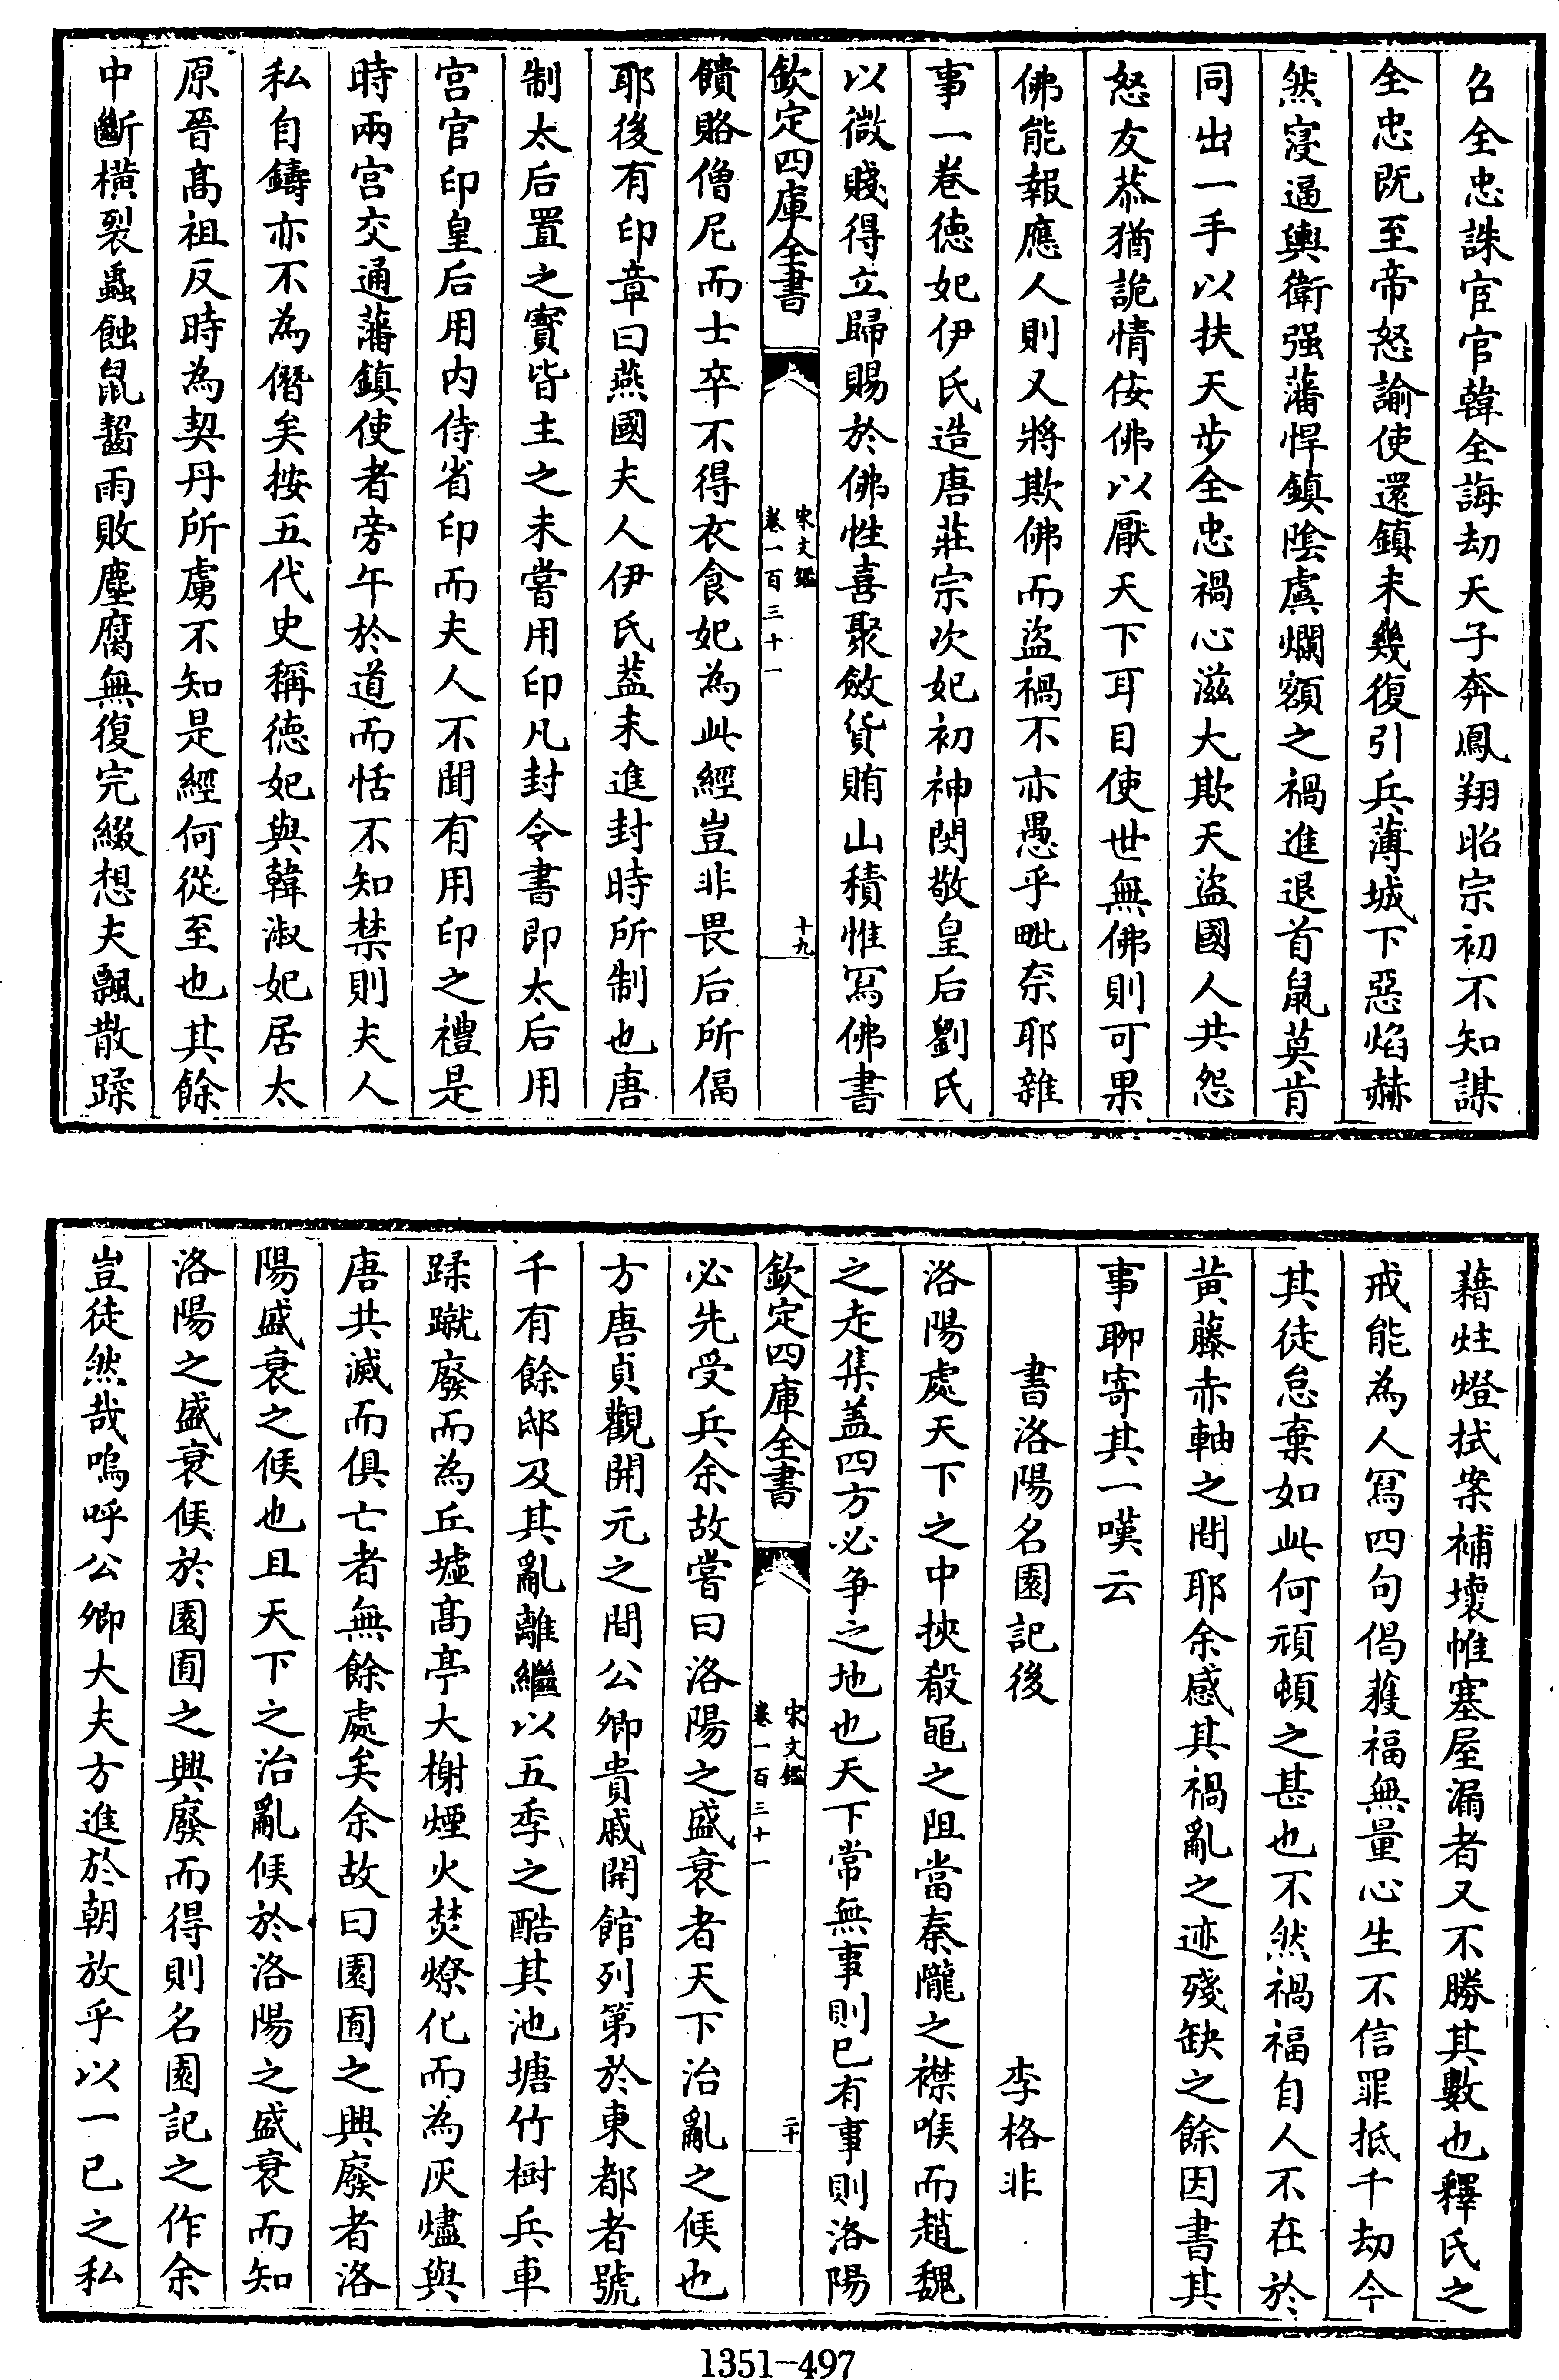 召全忠誅宦官韓全誨劫天子奔鳳翔昭宗初不知謀
全忠既至帝怒諭使還鎮未幾復引兵薄城下惡焰赫
然寖逼輿衛强藩悍鎮陰虞爛額之禍進退首䑕莫肯
同出一手以扶天步全忠禍心滋大欺天盜國人共怨
怒友恭猶詭情佞佛以厭天下耳目使世無佛則可果
佛能報應人則又將欺佛而盜禍不亦愚乎毗奈耶雜
事一卷德妃伊氏造唐莊宗次妃初神閔敬皇后劉氏
以微賤得立歸賜於佛性喜聚斂貨賄山積惟寫佛書
欽定四庫全書
宋文鑑
卷一百三十一
十九
饋賂僧尼而士卒不得衣食妃為此經豈非畏后所偪
耶後有印章曰燕國夫人伊氏葢未進封時所制也唐
制太后置之寳皆主之未嘗用印凡封令書即太后用
宫官印皇后用内侍省印而夫人不聞有用印之禮是
時兩宫交通藩鎮使者旁午於道而恬不知禁則夫人
私自鑄亦不為僭矣按五代史稱德妃與韓淑妃居太
原晉髙祖反時為契丹所虜不知是經何從至也其餘
中斷横裂蟲蝕鼠齧雨敗塵腐無復完綴想夫飄散蹂
藉炷燈拭案補壊帷塞屋漏者又不勝其數也釋氏之
戒能為人寫四句偈獲福無量心生不信罪抵千劫今
其徒怠棄如此何頑頓之甚也不然禍福自人不在於
黄藤赤軸之間耶余感其禍亂之迹殘缺之餘因書其
事聊寄其一嘆云
書洛陽名園記後
李格非
洛陽處天下之中挾殽黽之阻當秦隴之襟喉而趙魏
之走集葢四方必争之地也天下常無事則已有事則洛陽
欽定四庫全書
宋文鑑
卷一百三十一
二十
必先受兵余故嘗曰洛陽之盛衰者天下治亂之候也
方唐貞觀開元之間公卿貴戚開館列第於東都者號
千有餘邸及其亂離繼以五季之酷其池塘竹樹兵車
蹂蹴廢而為丘墟髙亭大榭煙火焚燎化而為灰燼與
唐共滅而俱亡者無餘處矣余故曰園囿之興廢者洛
陽盛衰之候也且天下之治亂候於洛陽之盛衰而知
洛陽之盛衰候於園囿之興廢而得則名園記之作余
豈徒然哉嗚呼公卿大夫方進於朝放乎以一已之私
1351-497